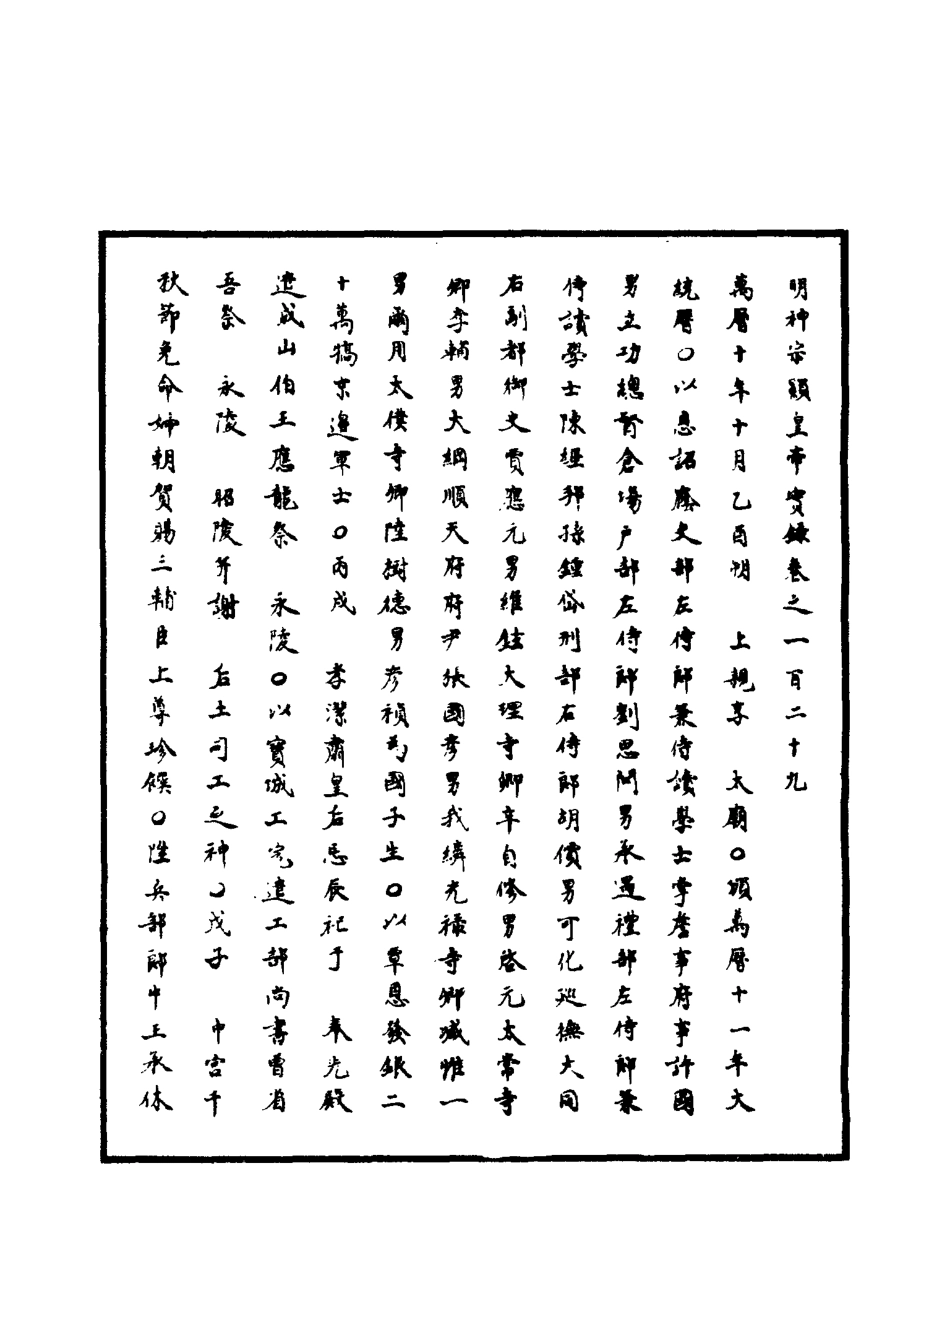 明神宗顯皇帝實錄卷之一百二十九
萬曆十年十月乙酉朔　上親享　太廟○頒萬曆十一年大
統曆○以恩詔廕吏部左侍郎兼侍讀學士掌詹事府事許國
男立功總督倉場戶部左侍郎劉思問男承遇禮部左侍郎兼
侍讀學士陳經邦孫鍾岱刑部右侍郎胡價男可化巡撫大同
右副都御史賈應元男維鉉大理寺卿辛自修男啓元太常寺
卿李輔男大綱順天府府尹張國彥男我繩光祿寺卿臧惟一
男爾用太僕寺卿陸樹德男彥禎為國子生○以覃恩發銀二
十萬犒京邊軍士○丙戌　孝潔肅皇后忌辰祀于　奉先殿
遣成山伯王應龍祭　永陵○以寶城工完遣工部尚書曹省
吾祭　永陵　昭陵并謝　后土司工之神○戊子　中宮千
秋節免命婦朝賀賜三輔臣上尊珍饌○陞兵部郎中王承休